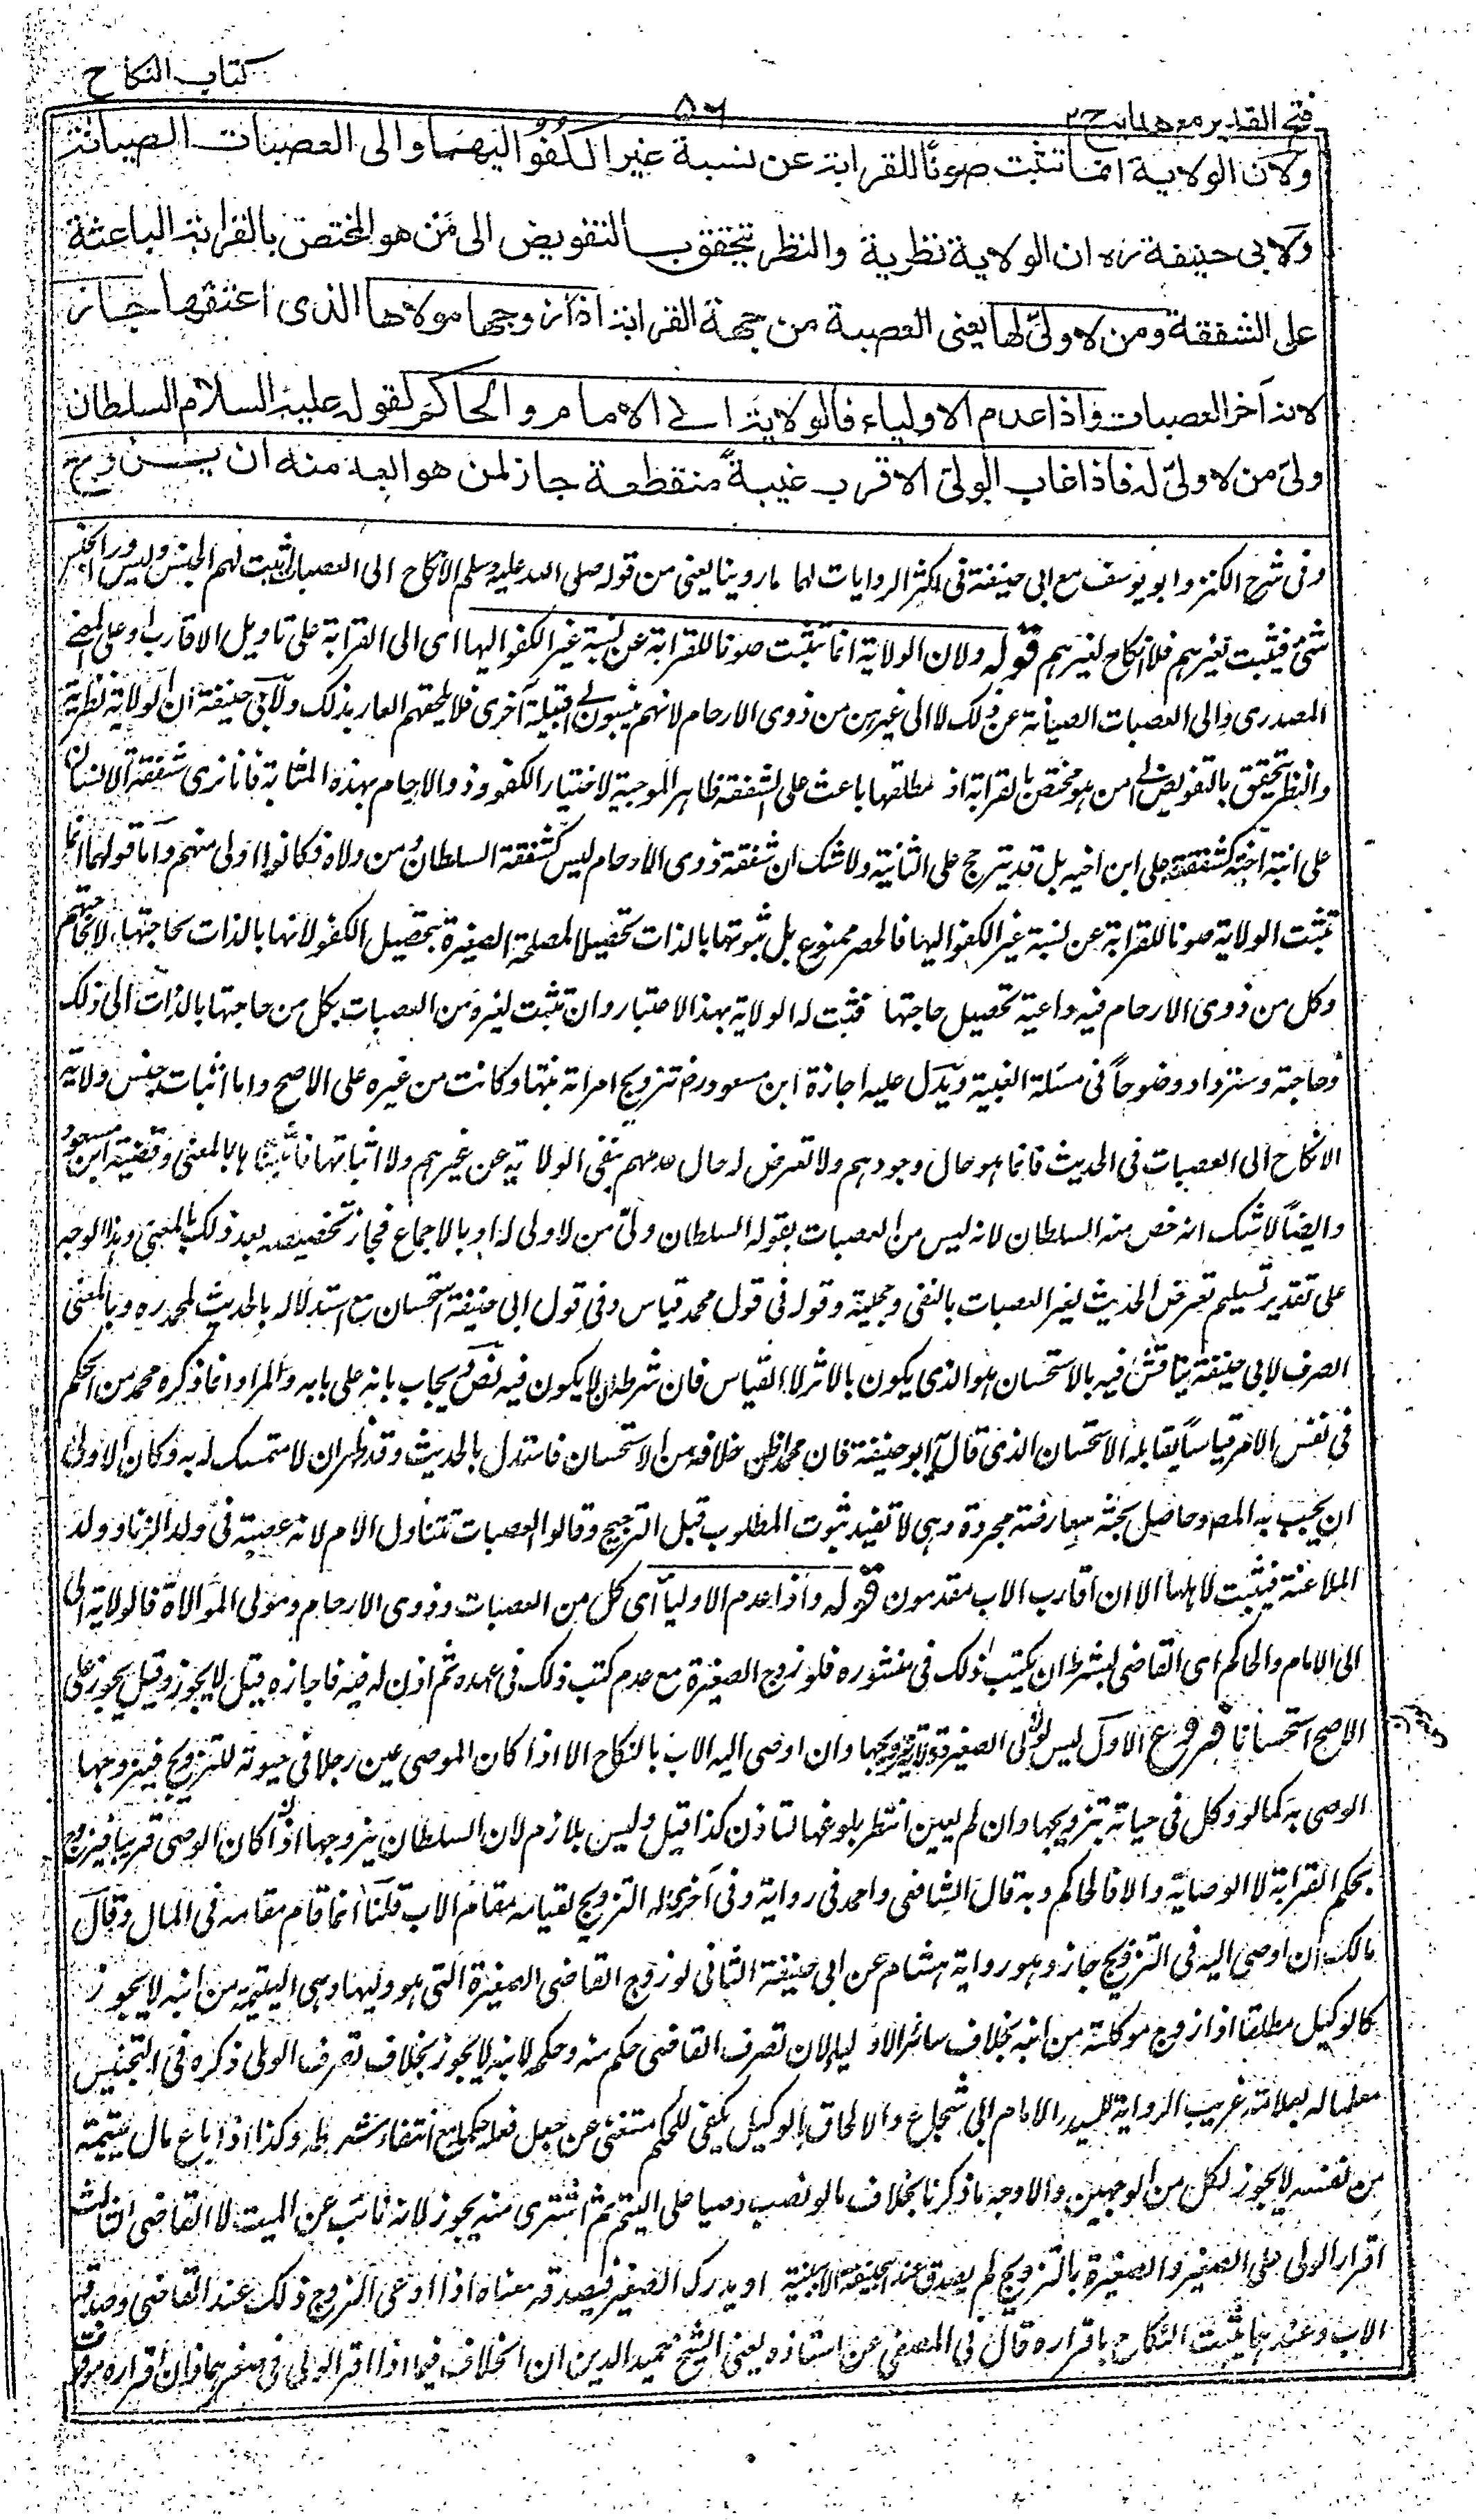 كتاب النكاح
٥٦
فتح القدير مع هداية ج ٢
ولان الولاية انما تثبت صونًا للقرابة عن نسبة غير الكفُؤ اليهما والى العصبات الصيانة
ولابى حنيفة ره ان الولاية نظرية والنظر يتحقق بالتفويض الى مَن هو المختص بالقرابة الباعثة
على الشفقة ومن لا ولىّ لها يعنى العصبة من جهة القرابة اذا زوجها مولاها الذى اعتقها جاز
لانه آخر العصبات واذا عدم الاولياء فالولاية الى الامام والحاكم لقوله عليه السلام السلطان
ولىّ من لا ولىّ له فاذا غاب الولىّ الاقرب غيبةً منقطعة جاز لمن هو ابعد منه ان يزوج
وفى شرح الكنز وابو يوسف مع ابى حنيفة فى اكثر الروايات لهما ما روينا يعنى من قوله صلى الله عليه وسلم الانكاح الى العصبات اثبت لهم الجنس وليس وراء الجنس
شئ فيثبت لغيرهم فلا انكاح لغيرهم قوله ولان الولاية انما تثبت صونا للقرابة عن نسبة غير الكفؤ اليها اى الى القرابة على تاويل الاقارب او على المعنى
المصدرى والى العصبات الصيانة عن ذلك لا الى غيرهن من ذوى الارحام لانهم ينسبون الى قبيلة اخرى فلا يلحقهم العار بذلك ولابى حنيفة ان الولاية نظرية
والنظر يتحقق بالتفويض الى من هو مختص بالقرابة اذ مطلقها باعث على الشفقة ظاهر الموجبة لاختيار الكفؤ وذو الارحام بهذه المثابة فانا نرى شفقة الانسان
على ابنة اخته كشفقته على ابن اخيه بل قد يترجح على الثانية ولا شك ان شفقة ذوى الارحام ليس كشفقة السلطان ومن ولاه فكانوا اولى منهم واما قولهما انما
تثبت الولاية صونا للقرابة عن نسبة غير الكفؤ اليها فالحصر ممنوع بل ثبوتها بالذات تحصيلا لمصلحة الصغيرة بتحصيل الكفؤ لانها بالذات لحاجتها لا لحاجتهم
وكل من ذوى الارحام فيه داعية تحصيل حاجتها فثبت له الولاية بهذا الاعتبار وان تثبت لغيره من العصبات بكل من حاجتها بالذات الى ذلك
وحاجته وستزداد وضوحاً فى مسئلة الغيبة ويدل عليه اجازة ابن مسعود رضـ تزويج امرأته بنتها وكانت من غيره على الاصح واما اثبات جنس ولاية
الانكاح الى العصبات فى الحديث فانما هو حال وجودهم ولا تعرض له حال عدمهم بنفى الولاية عن غيرهم ولا اثباتها فاثبتناها بالمعنى وقضية ابن مسعود
وايضاً لا شك انه خص منه السلطان لانه ليس من العصبات بقوله السلطان ولىّ من لا ولى له او بالاجماع فجاز تخصيصه بعد ذلك بالمعنى وهذا الوجه
على تقدير تسليم تعرض الحديث لغير العصبات بالنفى وجملية وقوله فى قول محمد قياس وفى قول ابى حنيفة استحسان مع استدلاله بالحديث لمحمد ره وبالمعنى
الصرف لابى حنيفة يناقش فيه بالاستحسان هو الذى يكون بالاثر لا القياس فان شرطه ان لا يكون فيه نص ويجاب بانه على بابه والمراد انما ذكره محمد من الحكم
فى نفس الامر قياساً يقابله الاستحسان الذى قال ابو حنيفة فان محمدا ظن خلافه من الاستحسان فاستدل بالحديث وقد ظهر ان لا متمسك له به وكان الاولى
ان يجيب به المصـ وحاصل بحثه معارضة مجردة وهى لا تفيد ثبوت المطلوب قبل الترجيح وقالوا العصبات تتناول الام لانه عصبته فى ولد الزنا وولد
الملاعنة فيثبت لاهلها الا ان اقارب الاب مقدمون قوله واذا عدم الاولياء اى كل من العصبات وذوى الارحام ومولى الموالاة فالولاية الى
الى الامام والحاكم اى القاضى بشرط ان يكتب ذلك فى منشوره فلو زوج الصغيرة مع عدم كتب ذلك فى عهده ثم اذن له فيه فاجازه قيل لا يجوز وقيل يجوز على
الاصح استحسانا فروع الاول ليس لوصى الصغير ولاية تزويجها وان اوصى اليه الاب بالنكاح الا اذا كان الموصى عين رجلا فى حيوته للتزويج فيزوجها
الوصى به كما لو وكل فى حياته بتزويجها وان لم يعين انتظر بلوغها لتاذن كذا قيل وليس بلازم لان السلطان يزوجها اذا كان الوصى قريبا فيزوج
بحكم القرابة لا الوصاية والا فالحاكم وبه قال الشافعى واحمد فى رواية وفى اخرى له التزويج لقيامه مقام الاب قلنا انما قام مقامه فى المال وقال
مالك ان اوصى اليه فى التزويج جاز وهو رواية هشام عن ابى حنيفة الثانى لو زوج القاضى الصغيرة التى هو وليها وهى اليتيمة من ابنه لا يجوز
كالوكيل مطلقا اذا زوج موكلته من ابنه بخلاف سائر الاولياء لان تصرف القاضى حكم منه وحكمه لابنه لا يجوز بخلاف تصرف الولى ذكره فى التجنيس
معلما له بعلامة غريب الرواية للسيد الامام ابى شجاع والالحاق بالوكيل يكفى للحكم مستغنى عن جعل فعله حكما مع انتفاء شرطه وكذا اذا باع مال يتيمه
من نفسه لا يجوز لكل من الوجهين والاوجه ما ذكرنا بخلاف ما لو نصب وصيا على اليتيم ثم اشترى منه يجوز لانه نائب عن الميت لا القاضى الثالث
اقرار الولى على الصغير والصغيرة بالتزويج لم يصدق عند ابى حنيفة الا ببينة او يدرك الصغير فيصدقه معناه اذا ادعى الزوج ذلك عند القاضى وصدقه
الاب وعندهما يثبت النكاح باقراره قال فى المصفى عن استاذه يعنى الشيخ حميد الدين ان الخلاف فيما اذا اقر الولى فى صغرهما فان اقراره موقوف